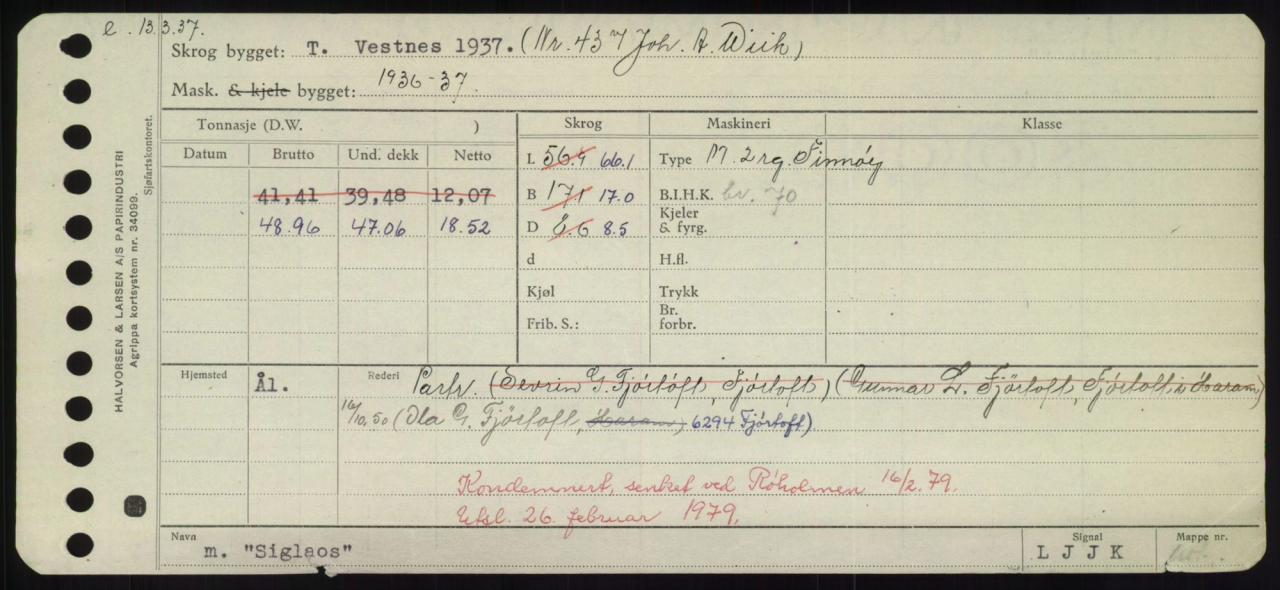 e. 13.3.37.
Skrog bygget: T. Vestnes 1937. (Nr. 437 Joh. A. Wiik)
Mask. & kjele bygget: 1936-37.
Tonnasje (D.W. ) Skrog Maskineri Klasse
Datum Brutto Und. dekk Netto L 56.4 66.1 Type M. 2 rg. Finnöy
41,41 39,48 12,07 B 17.1 17.0 B.I.H.K. br. 70
48.96 47.06 18.52 D 8.6 8.5 Kjeler & fyrg.
d H.fl.
Kjøl Trykk
Frib. S.: Br. forbr.
Hjemsted Ål. Rederi Partr. (Sevrin G. Fjörtoft, Fjörtoft) (Gunnar L. Fjörtoft, Fjörtoft i Haram)
16/10.50 (Ola G. Fjörtoft, Haram) 6294 Fjörtoft)
Kondemnert, senket ved Röholmen 16/2.79.
Utsl. 26. februar 1979.
Navn m. "Siglaos" Signal L J J K Mappe nr.
HALVORSEN & LARSEN A/S PAPIRINDUSTRI
Agrippa kortsystem nr. 34099.
Sjøfartskontoret.